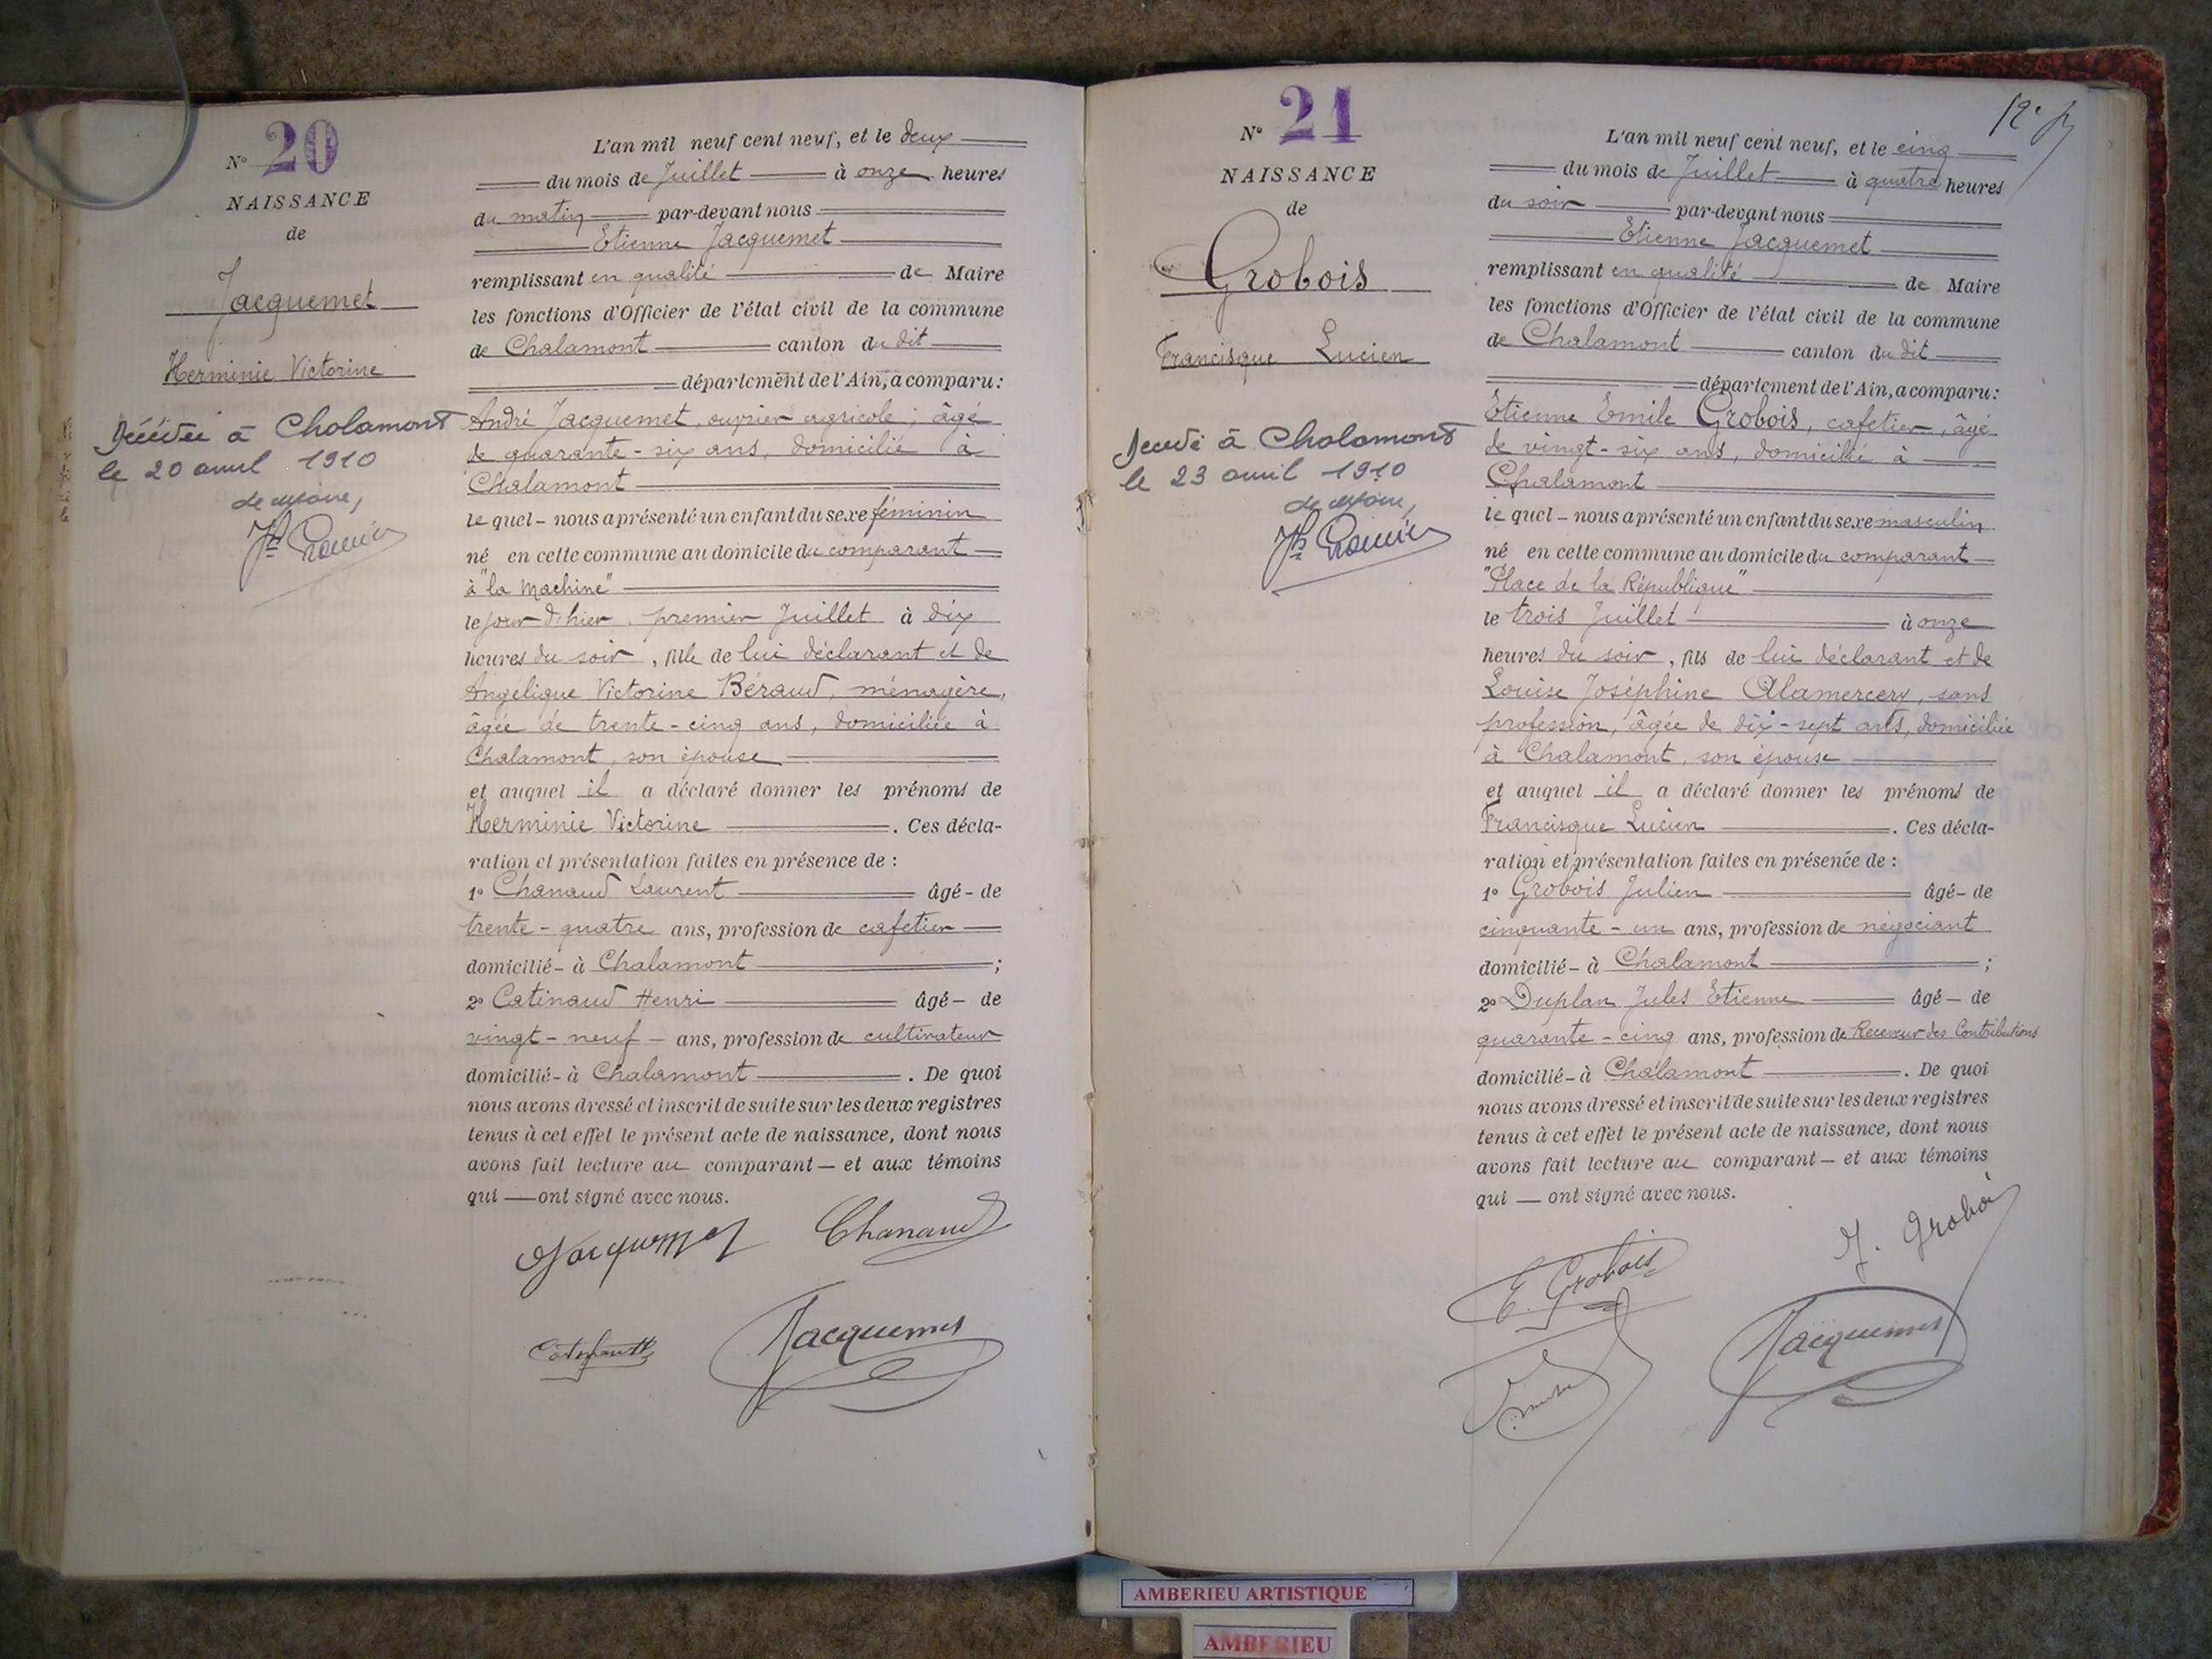 N° 20
NAISSANCE
de
Jacquemet
Herminie Victorine
Décédée à Chalamont
le 20 avril 1910
Le Maire,
L'an mil neuf cent neuf, et le deux
du mois de Juillet à onze heures
du matin par-devant nous
Etienne Jacquemet
remplissant en qualité de Maire
les fonctions d'Officier de l'état civil de la commune
de Chalamont canton du dit
département de l'Ain, a comparu :
André Jacquemet, ouvrier agricole, âgé
de quarante-six ans, domicilié à
Chalamont
le quel - nous a présenté un enfant du sexe féminin
né en cette commune au domicile du comparant
à "la Machine"
le jour d'hier, premier Juillet à dix
heures du soir, fille de lui déclarant et de
Angélique Victorine Béraud, ménagère,
âgée de trente-cinq ans, domiciliée à
Chalamont, son épouse
et auquel il a déclaré donner les prénoms de
Herminie Victorine . Ces décla-
ration et présentation faites en présence de :
1° Chanaud Laurent âgé - de
trente-quatre ans, profession de cafetier
domicilié - à Chalamont ;
2° Catinaud Henri âgé - de
vingt-neuf - ans, profession de cultivateur
domicilié - à Chalamont . De quoi
nous avons dressé et inscrit de suite sur les deux registres
tenus à cet effet le présent acte de naissance, dont nous
avons fait lecture au comparant - et aux témoins
qui - ont signé avec nous.
Jacquemet Chanaud
Jacquemet
12e
N° 21
NAISSANCE
de
Grobois
Francisque Lucien
Décédé à Chalamont
le 23 avril 1910
Le Maire,
L'an mil neuf cent neuf, et le cinq
du mois de Juillet à quatre heures
du soir par-devant nous
Etienne Jacquemet
remplissant en qualité de Maire
les fonctions d'Officier de l'état civil de la commune
de Chalamont canton du dit
département de l'Ain, a comparu :
Etienne Emile Grobois, cafetier, âgé
de vingt-six ans, domicilié à
Chalamont
le quel - nous a présenté un enfant du sexe masculin
né en cette commune au domicile du comparant
"Place de la République"
le trois Juillet à onze
heures du soir, fils de lui déclarant et de
Louise Joséphine Alamercery, sans
profession, âgée de dix-sept ans, domiciliée
à Chalamont, son épouse
et auquel il a déclaré donner les prénoms de
Francisque Lucien . Ces décla-
ration et présentation faites en présence de :
1° Grobois Julien âgé - de
cinquante-un ans, profession de négociant
domicilié - à Chalamont ;
2° Duplan Jules Etienne âgé - de
quarante-cinq ans, profession de Receveur des Contributions
domicilié - à Chalamont . De quoi
nous avons dressé et inscrit de suite sur les deux registres
tenus à cet effet le présent acte de naissance, dont nous
avons fait lecture au comparant - et aux témoins
qui - ont signé avec nous.
J. Grobois
E. Grobois
Jacquemet
AMBERIEU ARTISTIQUE
AMBERIEU